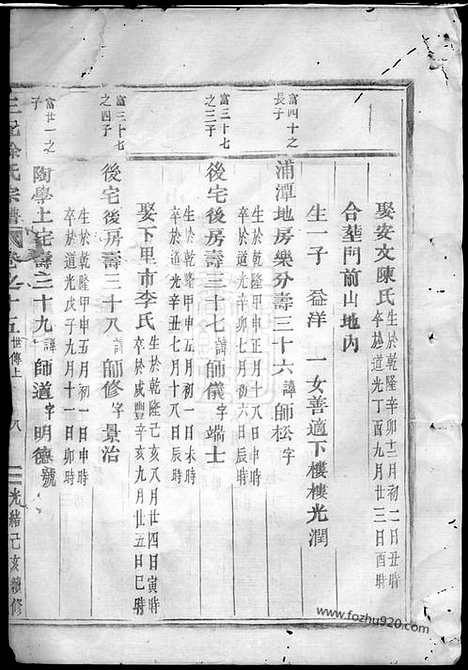 娶安文陳氏 生於乾隆辛卯十二月初二日丑時
卒於道光丁酉九月廿三日酉時
合葬門前山地內
生一子 益洋 一女善適下樓樓光潤
富四十之
長子
浦潭地房樂分壽三十六 諱師松字
生於乾隆甲申正月十八日申時
卒於道光辛卯七月初六日辰時
富三十七
之三子
後宅後房壽三十七 諱師儀字端士
生於乾隆甲申五月初一日未時
卒於道光辛丑七月十八日辰時
娶下里市李氏 生於乾隆己亥八月廿四日寅時
卒於咸豐辛亥九月廿五日巳時
富三十七
之四子
後宅後房壽三十八 諱師修字景治
生於乾隆甲申五月初一日申時
卒於道光戊子九月十一日卯時
富廿一之
子
陶學上宅壽三十九 諱師道字明德號
徐氏宗譜 卷之十五 世傳上
八
光緒己亥續修
www.fozhu920.com